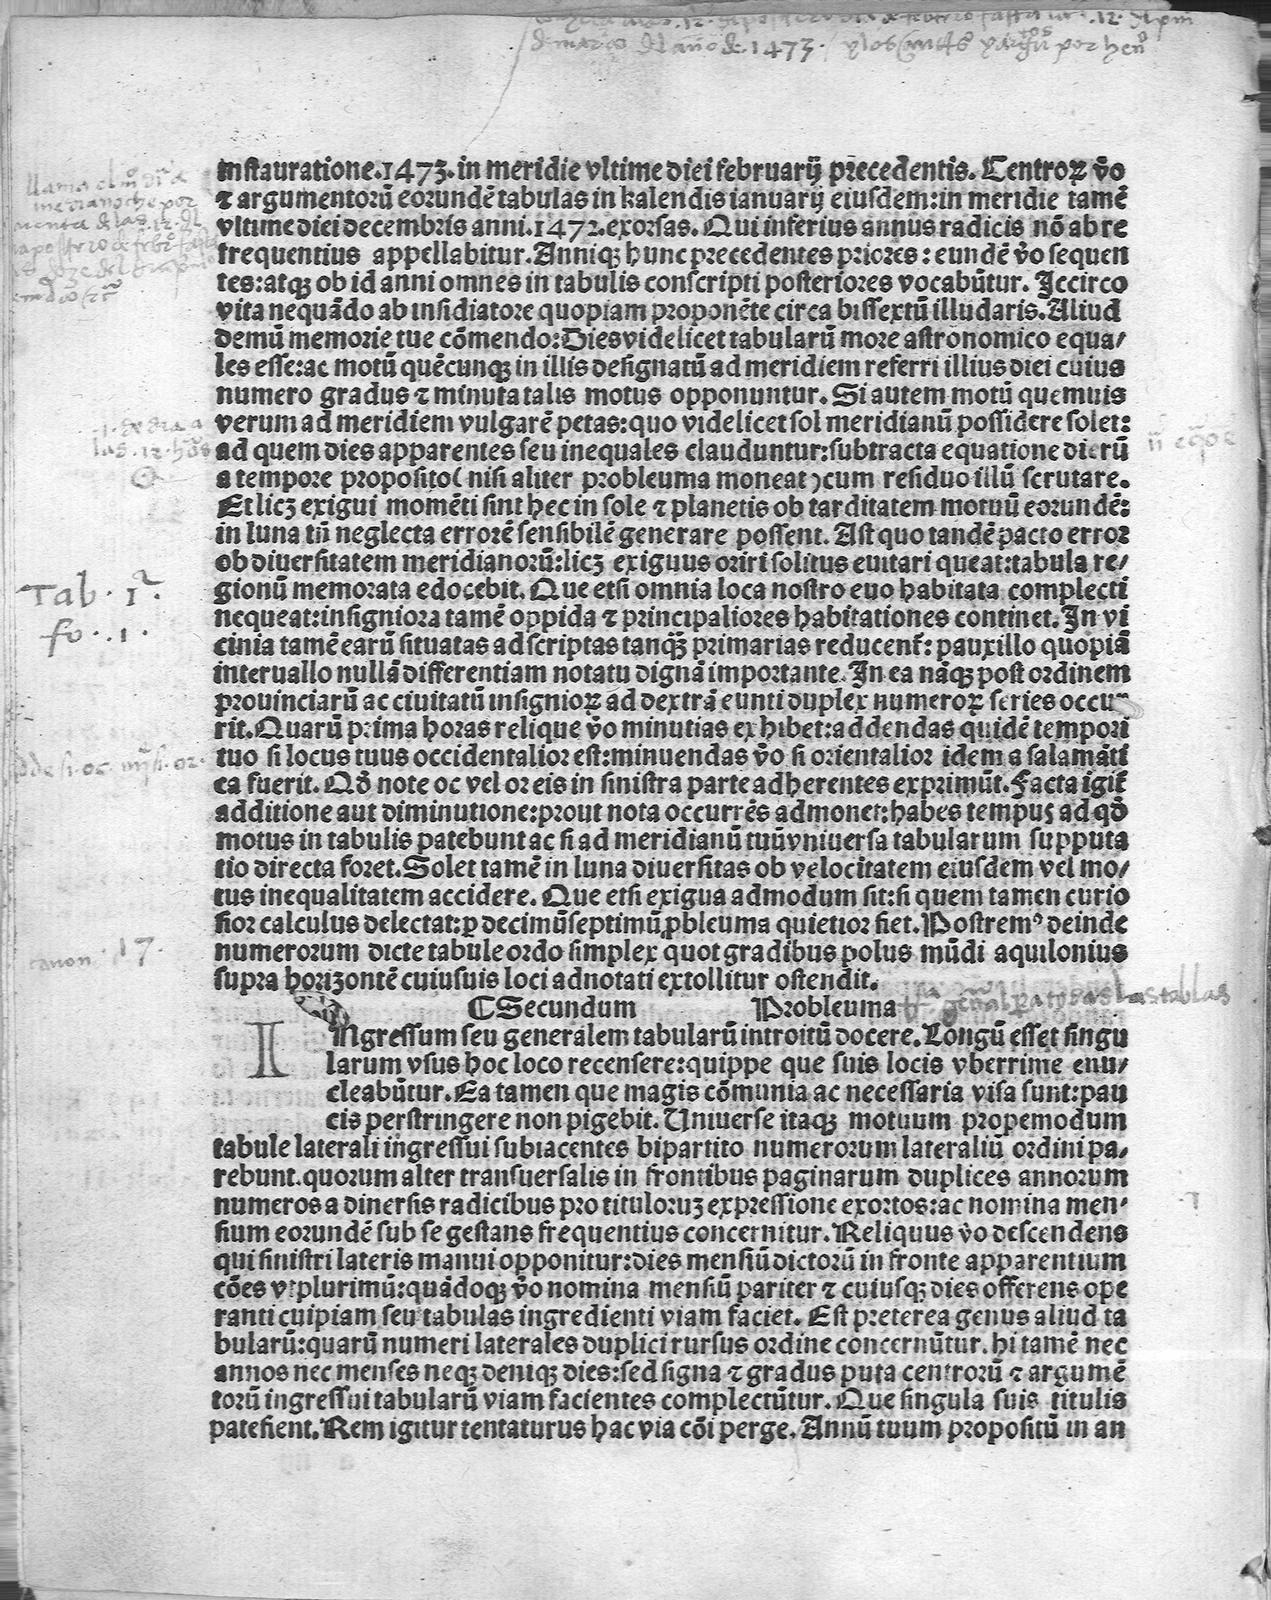 de março del año de .1473.
instauratione.1473.in meridie vltime diei februarij precedentis. Centroꝝ v̄o
⁊ argumentorū eorundē tabulas in kalendis ianuarij eiusdem:in meridie tamē
vltime diei decembris anni.1472.exorsas. Qui inferius annus radicis nō ab re
frequentius appellabitur. Anniqꝫ hunc precedentes priores: eundē v̄o sequen
tes:atqꝫ ob id anni omnes in tabulis conscripti posteriores vocabūtur. Iccirco
vita nequādo ab insidiatore quopiam proponēte circa bissextū illudaris. Aliud
demū memorie tue cōmendo:Dies videlicet tabularū more astronomico equa/
les esse:ac motū quēcunqꝫ in illis designatū ad meridiem referri illius diei cuius
numero gradus ⁊ minuta talis motus opponuntur. Si autem motū quemuis
verum ad meridiem vulgarē petas:quo videlicet sol meridianū possidere solet:
ad quem dies apparentes seu inequales clauduntur:subtracta equatione dierū
a tempore proposito( nisi aliter probleuma moneat )cum residuo illū scrutare.
Et licꝫ exigui momēti sint hec in sole ⁊ planetis ob tarditatem motuū eorundē:
in luna tn̄ neglecta errorē sensibilē generare possent. Ast quo tandē pacto error
ob diuersitatem meridianorū:licꝫ exiguus oriri solitus euitari queat:tabula re/
Tab. 1ª.
gionū memorata edocebit. Que etsi omnia loca nostro euo habitata complecti
fo. .1.
nequeat:insigniora tamē oppida ⁊ principaliores habitationes continet. In vi
cinia tamē earū situatas adscriptas tanqꝫ̄ primarias reducent̄: pauxillo quopiā
interuallo nullā differentiam notatu dignā importante. In ea nāqꝫ post ordinem
prouinciarū ac ciuitatū insignioꝝ ad dextrā eunti duplex numeroꝝ series occur
rit. Quarū prima horas relique v̄o minutias exhibet:addendas quidē tempori
tuo si locus tuus occidentalior est:minuendas v̄o si orientalior idem a salamāti
ca fuerit. Qd̄ note oc vel or eis in sinistra parte adherentes exprimūt. Facta igit̄
additione aut diminutione:prout nota occurrēs admonet:habes tempus ad qd̄
motus in tabulis patebunt ac si ad meridianū tuū vniuersa tabularum supputa
tio directa foret. Solet tamē in luna diuersitas ob velocitatem eiusdem vel mo/
tus inequalitatem accidere. Que etsi exigua admodum sit:si quem tamen curio
sior calculus delectat:ꝑ decimūseptimū ꝓbleuma quietior fiet. Postremꝰ deinde
canon .17.
numerorum dicte tabule ordo simplex quot gradibus polus mūdi aquilonius
supra horizontē cuiusuis loci adnotati extollitur ostendit.
CSecundum Probleuma
INgressum seu generalem tabularū introitū docere. Longū esset singu
larum vsus hoc loco recensere:quippe que suis locis vberrime enu/
cleabūtur. Ea tamen que magis cōmunia ac necessaria visa sunt:pau
cis perstringere non pigebit. Uniuerse itaqꝫ motuum propemodum
tabule laterali ingressui subiacentes bipartito numerorum lateraliū ordini pa/
rebunt.quorum alter transuersalis in frontibus paginarum duplices annorum
numeros a diuersis radicibus pro tituloruꝫ expressione exortos:ac nomina men/
sium eorundē sub se gestans frequentius concernitur. Reliquus v̄o descendens
qui sinistri lateris manui opponitur:dies mensiū dictorū in fronte apparentium
cōes vt plurimū:quādoqꝫ v̄o nomina mensiū pariter ⁊ cuiusqꝫ dies offerens ope
ranti cuipiam seu tabulas ingredienti viam faciet. Est preterea genus aliud ta
bularū:quarū numeri laterales duplici rursus ordine concernūtur. hi tamē nec
annos nec menses neqꝫ deniqꝫ dies:sed signa ⁊ gradus puta centrorū ⁊ argumē
torū ingressui tabularū viam facientes complectūtur. Que singula suis titulis
patefient. Rem igitur tentaturus hac via cōi perge. Annū tuum propositū in an